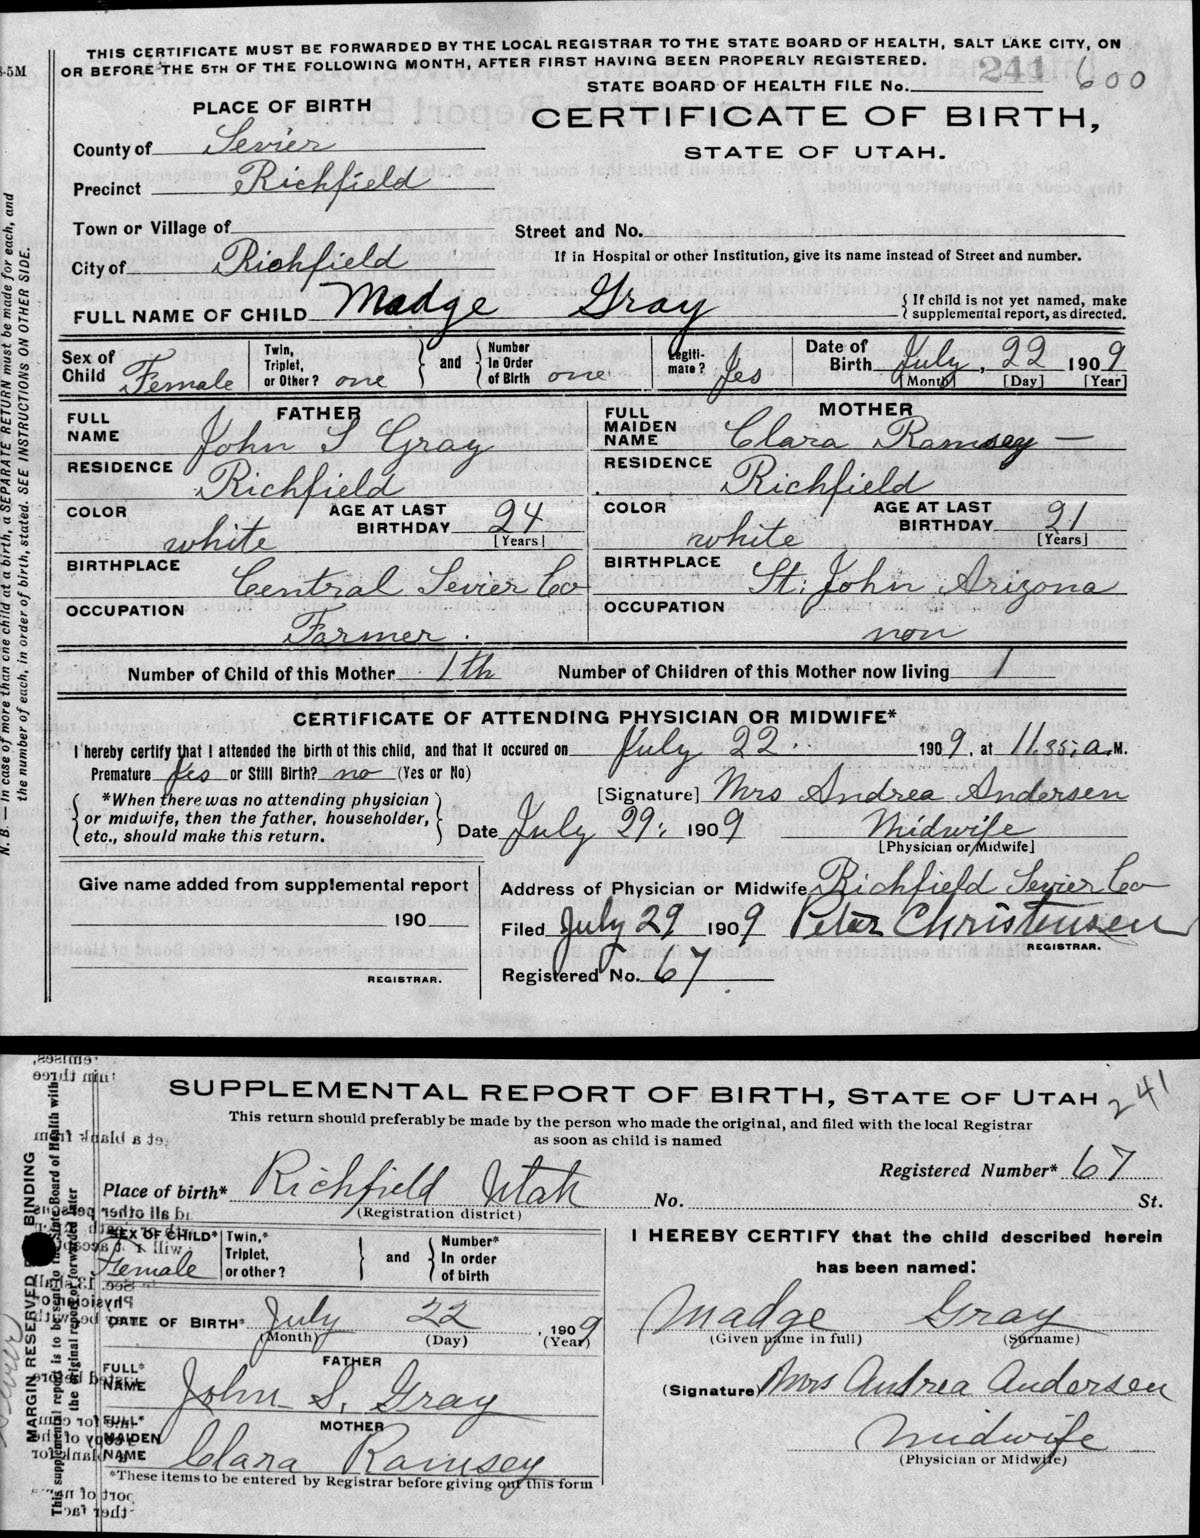 THIS CERTIFICATE MUST BE FORWARDED BY THE LOCAL REGISTRAR TO THE STATE BOARD OF HEALTH, SALT LAKE CITY, ON
OR BEFORE THE 5TH OF THE FOLLOWING MONTH, AFTER FIRST HAVING BEEN PROPERLY REGISTERED.
STATE BOARD OF HEALTH FILE No. 241 600
PLACE OF BIRTH
CERTIFICATE OF BIRTH,
STATE OF UTAH.
County of Sevier
Precinct Richfield
Town or Village of
Street and No.
City of Richfield
If in Hospital or other Institution, give its name instead of Street and number.
FULL NAME OF CHILD Madge Gray
{ If child is not yet named, make
supplemental report, as directed.
Sex of Child Female
Twin, Triplet, or Other? one
and
Number In Order of Birth one
Legiti-mate? Yes
Date of Birth July, 22 1909
[Month] [Day] [Year]
FATHER
FULL NAME John S Gray
RESIDENCE Richfield
COLOR white
AGE AT LAST BIRTHDAY 24
[Years]
BIRTHPLACE Central Sevier Co
OCCUPATION Farmer.
MOTHER
FULL MAIDEN NAME Clara Ramsey —
RESIDENCE Richfield
COLOR white
AGE AT LAST BIRTHDAY 21
[Years]
BIRTHPLACE St. John Arizona
OCCUPATION non
Number of Child of this Mother 1th
Number of Children of this Mother now living 1
CERTIFICATE OF ATTENDING PHYSICIAN OR MIDWIFE*
I hereby certify that I attended the birth of this child, and that it occured on July 22 1909, at 11.35, a.M.
Premature Yes or Still Birth? no (Yes or No)
*When there was no attending physician
or midwife, then the father, householder,
etc., should make this return.
[Signature] Mrs Andrea Andersen
Date July 29, 1909
Midwife
[Physician or Midwife]
Give name added from supplemental report
190
REGISTRAR.
Address of Physician or Midwife Richfield Sevier Co
Filed July 29 1909 Peter Christensen
REGISTRAR.
Registered No. 67
N. B. — In case of more than one child at a birth, a SEPARATE RETURN must be made for each, and
the number of each, in order of birth, stated. SEE INSTRUCTIONS ON OTHER SIDE.
SUPPLEMENTAL REPORT OF BIRTH, STATE OF UTAH
241
This return should preferably be made by the person who made the original, and filed with the local Registrar
as soon as child is named
Registered Number* 67
Place of birth* Richfield Utah No. St.
(Registration district)
SEX OF CHILD* Female
Twin,* Triplet, or other?
and
Number* In order of birth
DATE OF BIRTH* July 22, 1909
(Month) (Day) (Year)
FATHER
FULL* NAME John S. Gray
MOTHER
FULL* MAIDEN NAME Clara Ramsey
*These items to be entered by Registrar before giving out this form
I HEREBY CERTIFY that the child described herein
has been named:
Madge Gray
(Given name in full) (Surname)
(Signature) Mrs Andrea Andersen
Midwife
(Physician or Midwife)
MARGIN RESERVED BINDING